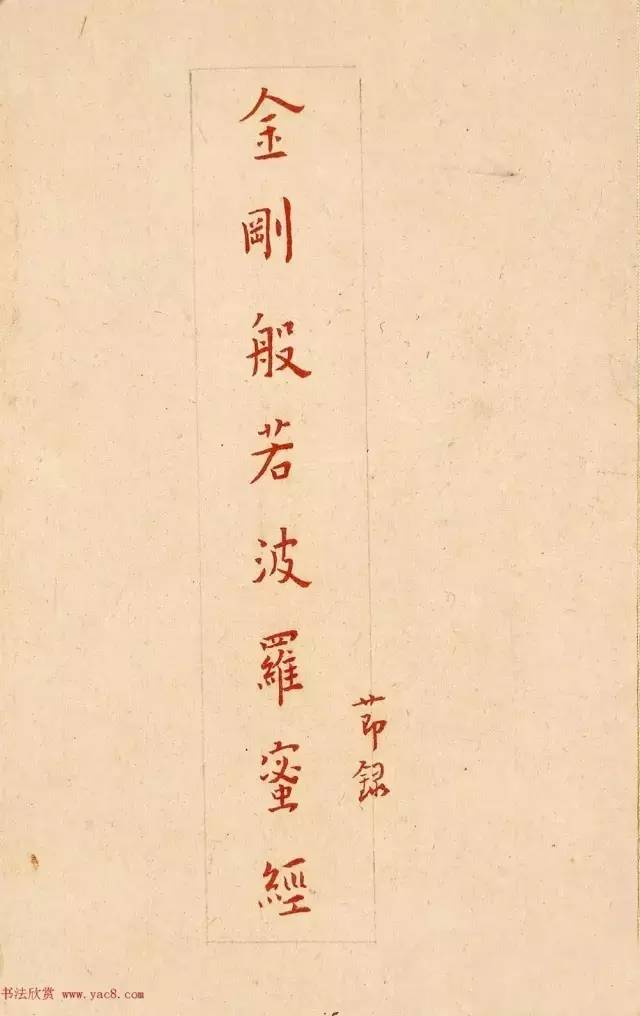 金剛般若波羅蜜經
莭録
书法欣赏 www.yac8.com